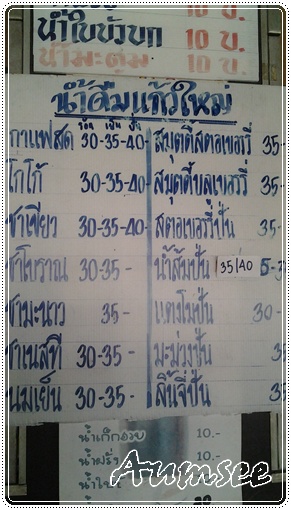 น้ำใบบัวบก 10 บ.
น้ำมะตูม 10 บ.
น้ำดื่มแก้วใหม่
ร้อน เย็น ปั่น
กาแฟสด 30-35-40- สมุตตี้สตอเบอรรี่ 35-
โกโก้ 30-35-40- สมุตตี้บลูเบอร์รี่ 35-
ชาเขียว 30-35-40- สตอเบอรรี่ปั่น 35-
ชาโบราณ 30-35- น้ำส้มปั่น 35/40
ชามะนาว 35- แตงโมปั่น 30-
ชาเนสที 30-35- มะม่วงปั่น 35
นมเย็น 30-35- ลิ้นจี่ปั่น 35
น้ำเก๊กฮวย 10.-
น้ำฝรั่ง 10.-
10.-
Aumsee